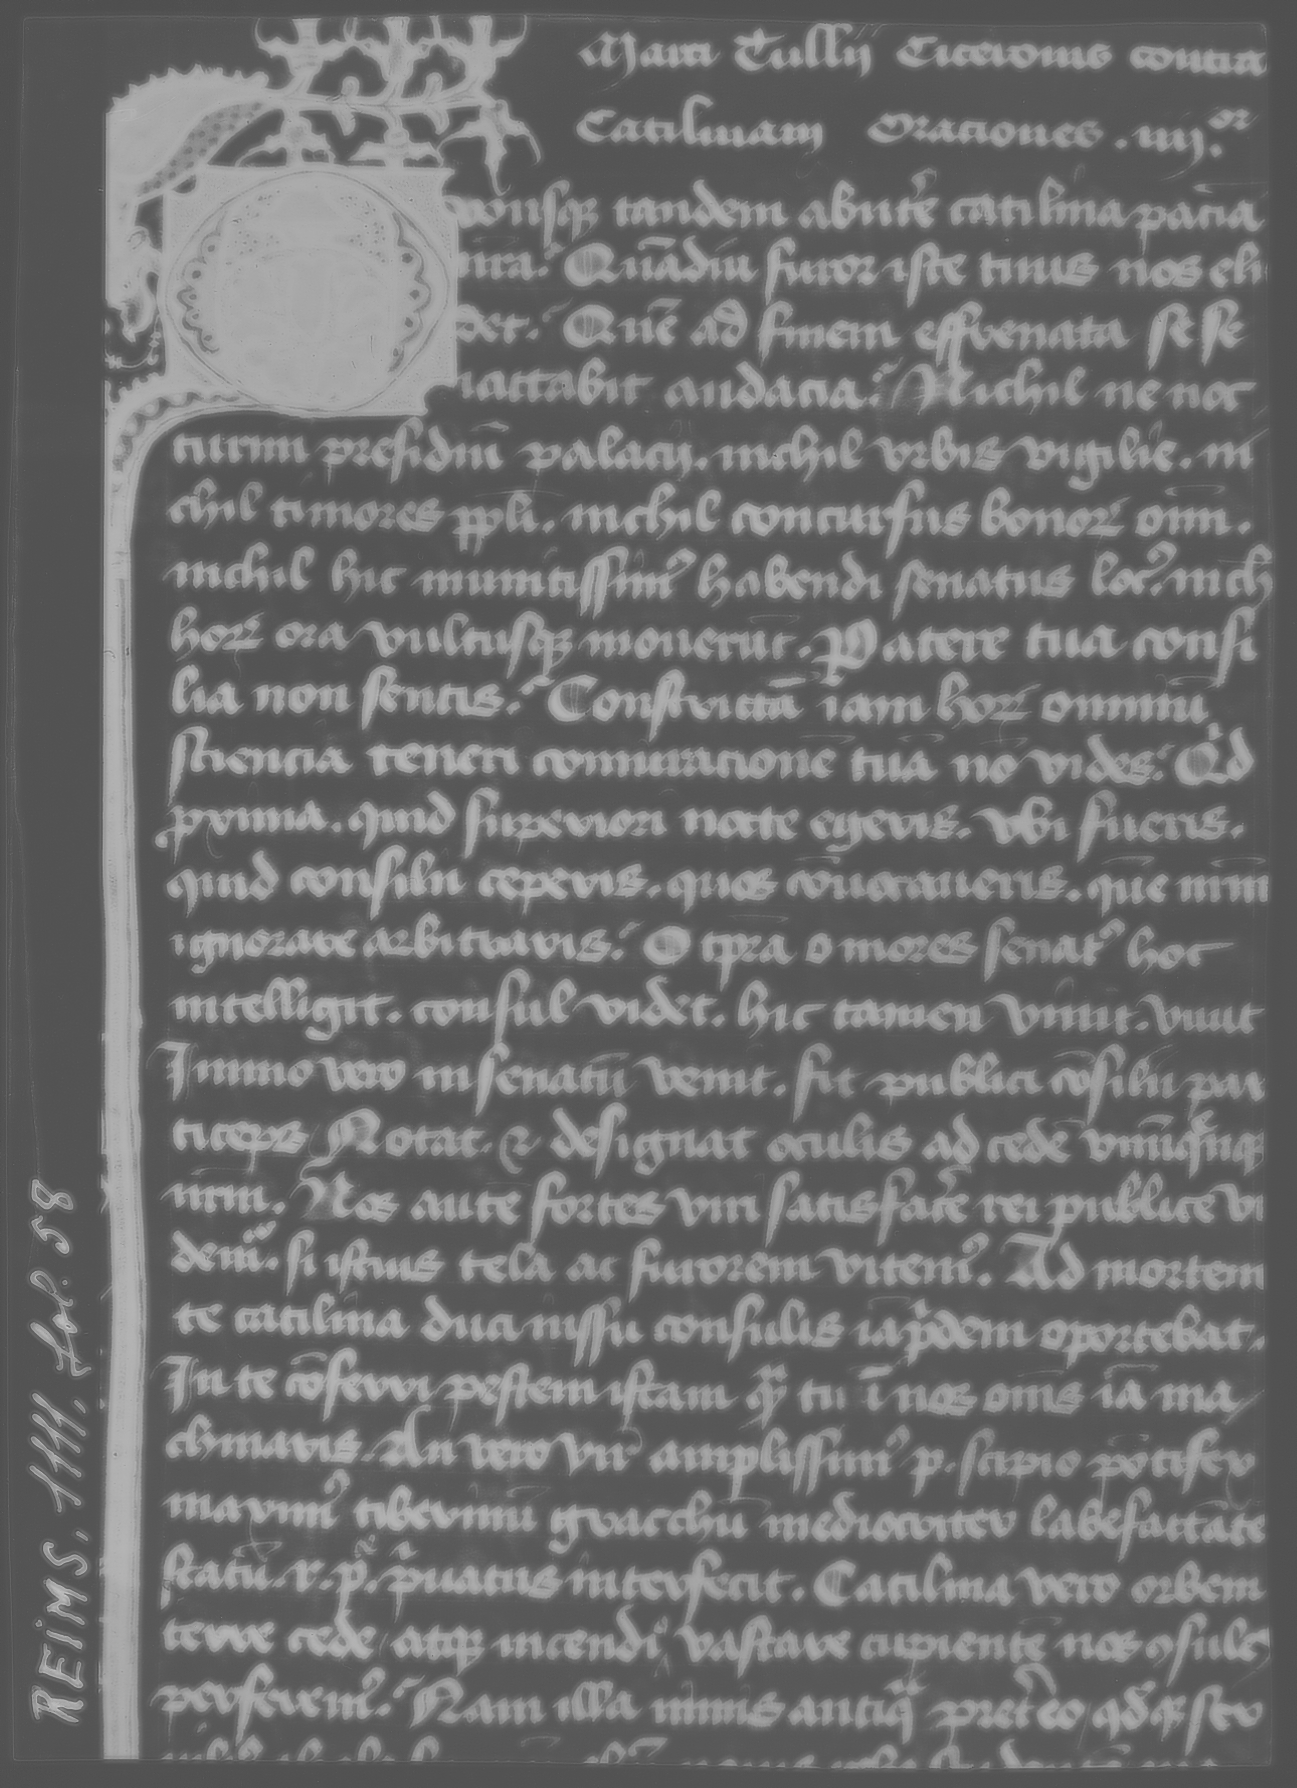 Marci Tullii Ciceronis contra
Catilinam Oraciones .iiij.or
Quousq tandem abutere catilina paciā
nr̄a. Quādiu furor iste tuus nos elu
det. Quē ad finem effrenata sese
iactabit audacia. Nichil ne noc
turnū presidiū palacij. nichil vrbis vigilie. ni
chil timores ppli. nichil concursus bonoꝝ oīm.
nichil hic munitissimꝰ habendi senatus locꝰ. nichil
hoꝝ ora vultusqꝫ mouerūt. Patere tua consi
lia non sentis. Constrictā iam hoꝝ omniū
sciencia teneri coniuracionē tuā nō vides. Qͥd
proxima. quid superiori nocte egeris. vbi fueris.
quid consilii ceperis. quos cōuocaueris. quē nr̄m
ignorare arbitraris. O tpra o mores senatꝰ hoc
intelligit. consul videt. hic tamen viuit. viuit
Immo vero in senatū venit. fit publici cōsilii par
ticeps Notat. ⁊ designat oculis ad cedē vnūquēqꝫ
nrm̄. Nos autē fortes viri satisfacere rei publice vi
demꝰ. si istius tela ac furorem vitemꝰ. Ad mortem
te catilina duci iussu consulis iāpridem oportebat.
In te cōferri pestem istam quā tu ī nos om̄s iā ma
chinaris. An vero vir amplissimꝰ p. scipio pōtifex
maximꝰ tiberiniū gracchū mediocriter labefactātē
statū .r. p. priuatus interfecit. Catilinā vero orbem
terre cede atqꝫ incendiis vastare cupientē nos ꝯsules
perferemꝰ. Nam illa nimis antiqua pretereo
REIMS. 1111, fol. 58